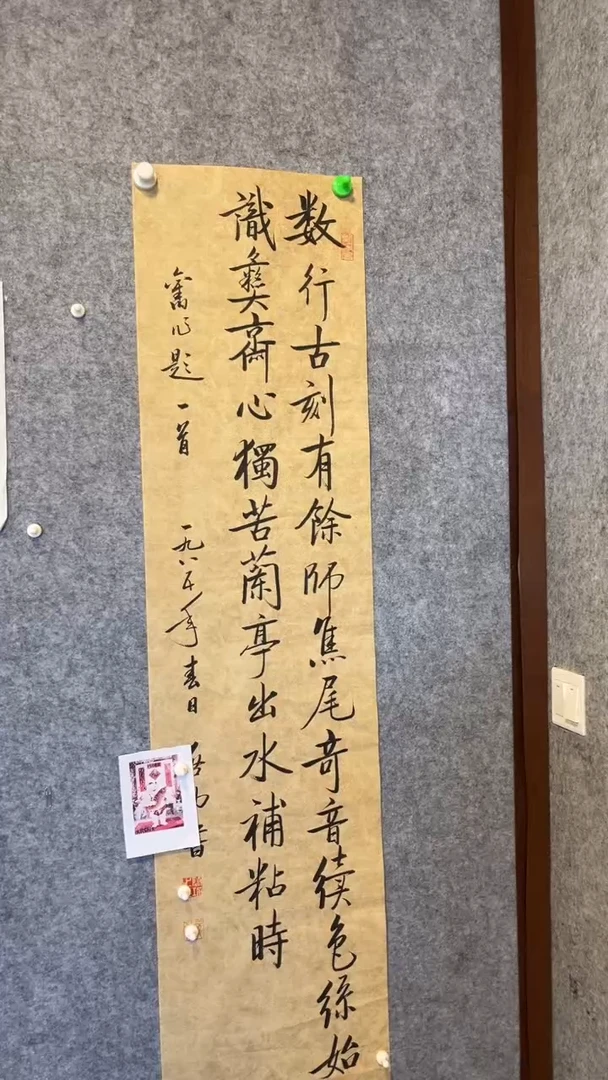 数行古刻有餘師焦尾奇音續色絲始
識彝齋心獨苦蘭亭出水補粘時
舊作題一首 一九八五年春日 啓功書